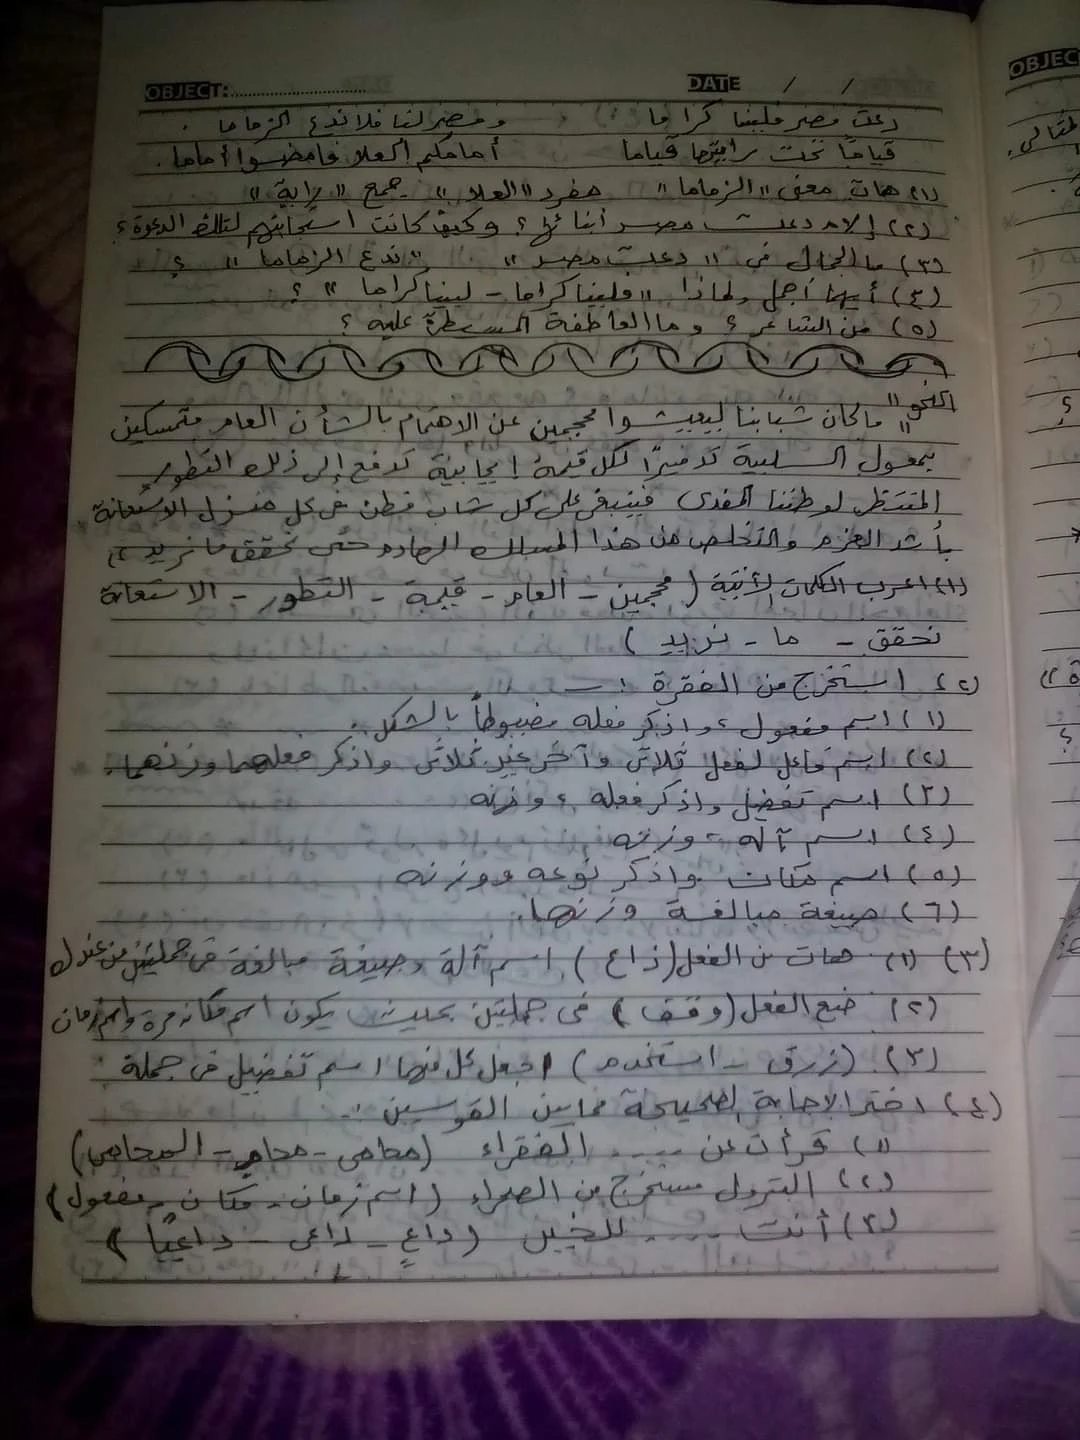 OBJECT:.......................... DATE / /
دعت مصر فلبينا كراما ومصر لنا فلا ندع الزماما
قياما تحت رايتها قياما أمامكم العلا فامضوا أماما.
(١) هات معنى "الزماما" مفرد "العلا" جمع "راية"
(٢) إلام دعت مصر أبنائها؟ وكيف كانت استجابتهم لتلك الدعوة؟
(٣) ما الجمال في "دعت مصر" "ندع الزماما" ؟
(٤) أيهما أجمل ولماذا "فلبينا كراما - لبينا كراما" ؟
(٥) من الشاعر؟ وما العاطفة المسيطرة عليه؟
النحو"
"ما كان شبابنا ليعيشوا محجمين عن الاهتمام بالشأن العام متمسكين
بمعول السلبية تدميرًا لكل قيمة إيجابية تدفع إلى ذلك التطور
المنتظر لوطننا المفدى فينبغى على كل شاب فطن فى كل منزل الاستعانة
بأشد العزم والتخلص من هذا المسلك الهادم حتى نحقق ما نريد"
(١) اعرب الكلمات الآتية (محجمين - العام - قيمة - التطور - الاستعانة
نحقق - ما - نريد)
(٢) استخرج من الفقرة :-
(١) اسم مفعول، واذكر فعله مضبوطاً بالشكل.
(٢) اسم فاعل لفعل ثلاثى وآخر غير ثلاثى واذكر فعلهما وزنهما.
(٣) اسم تفضيل واذكر فعله، وزنه
(٤) اسم آلة، وزنه
(٥) اسم مكان واذكر نوعه ووزنه
(٦) صيغة مبالغة وزنها.
(٣) (١) هات من الفعل (ذاع) اسم آلة وصيغة مبالغة فى جملتين من عندك
(٢) ضع الفعل (وقف) فى جملتين بحيث يكون اسم مكان مرة واسم زمان
(٣) (زرق - استخدم) اجعل كل منهما اسم تفضيل فى جملة.
(٤) اختر الاجابة الصحيحة مما بين القوسين :-
(١) قرأت عن ..... الفقراء (محامى - محامٍ - المحامى)
(٢) البترول مستخرج من الصحراء (اسم زمان - مكان - مفعول)
(٣) أنت ..... للخير (داعٍ - داعى - داعيًا)
OBJEC